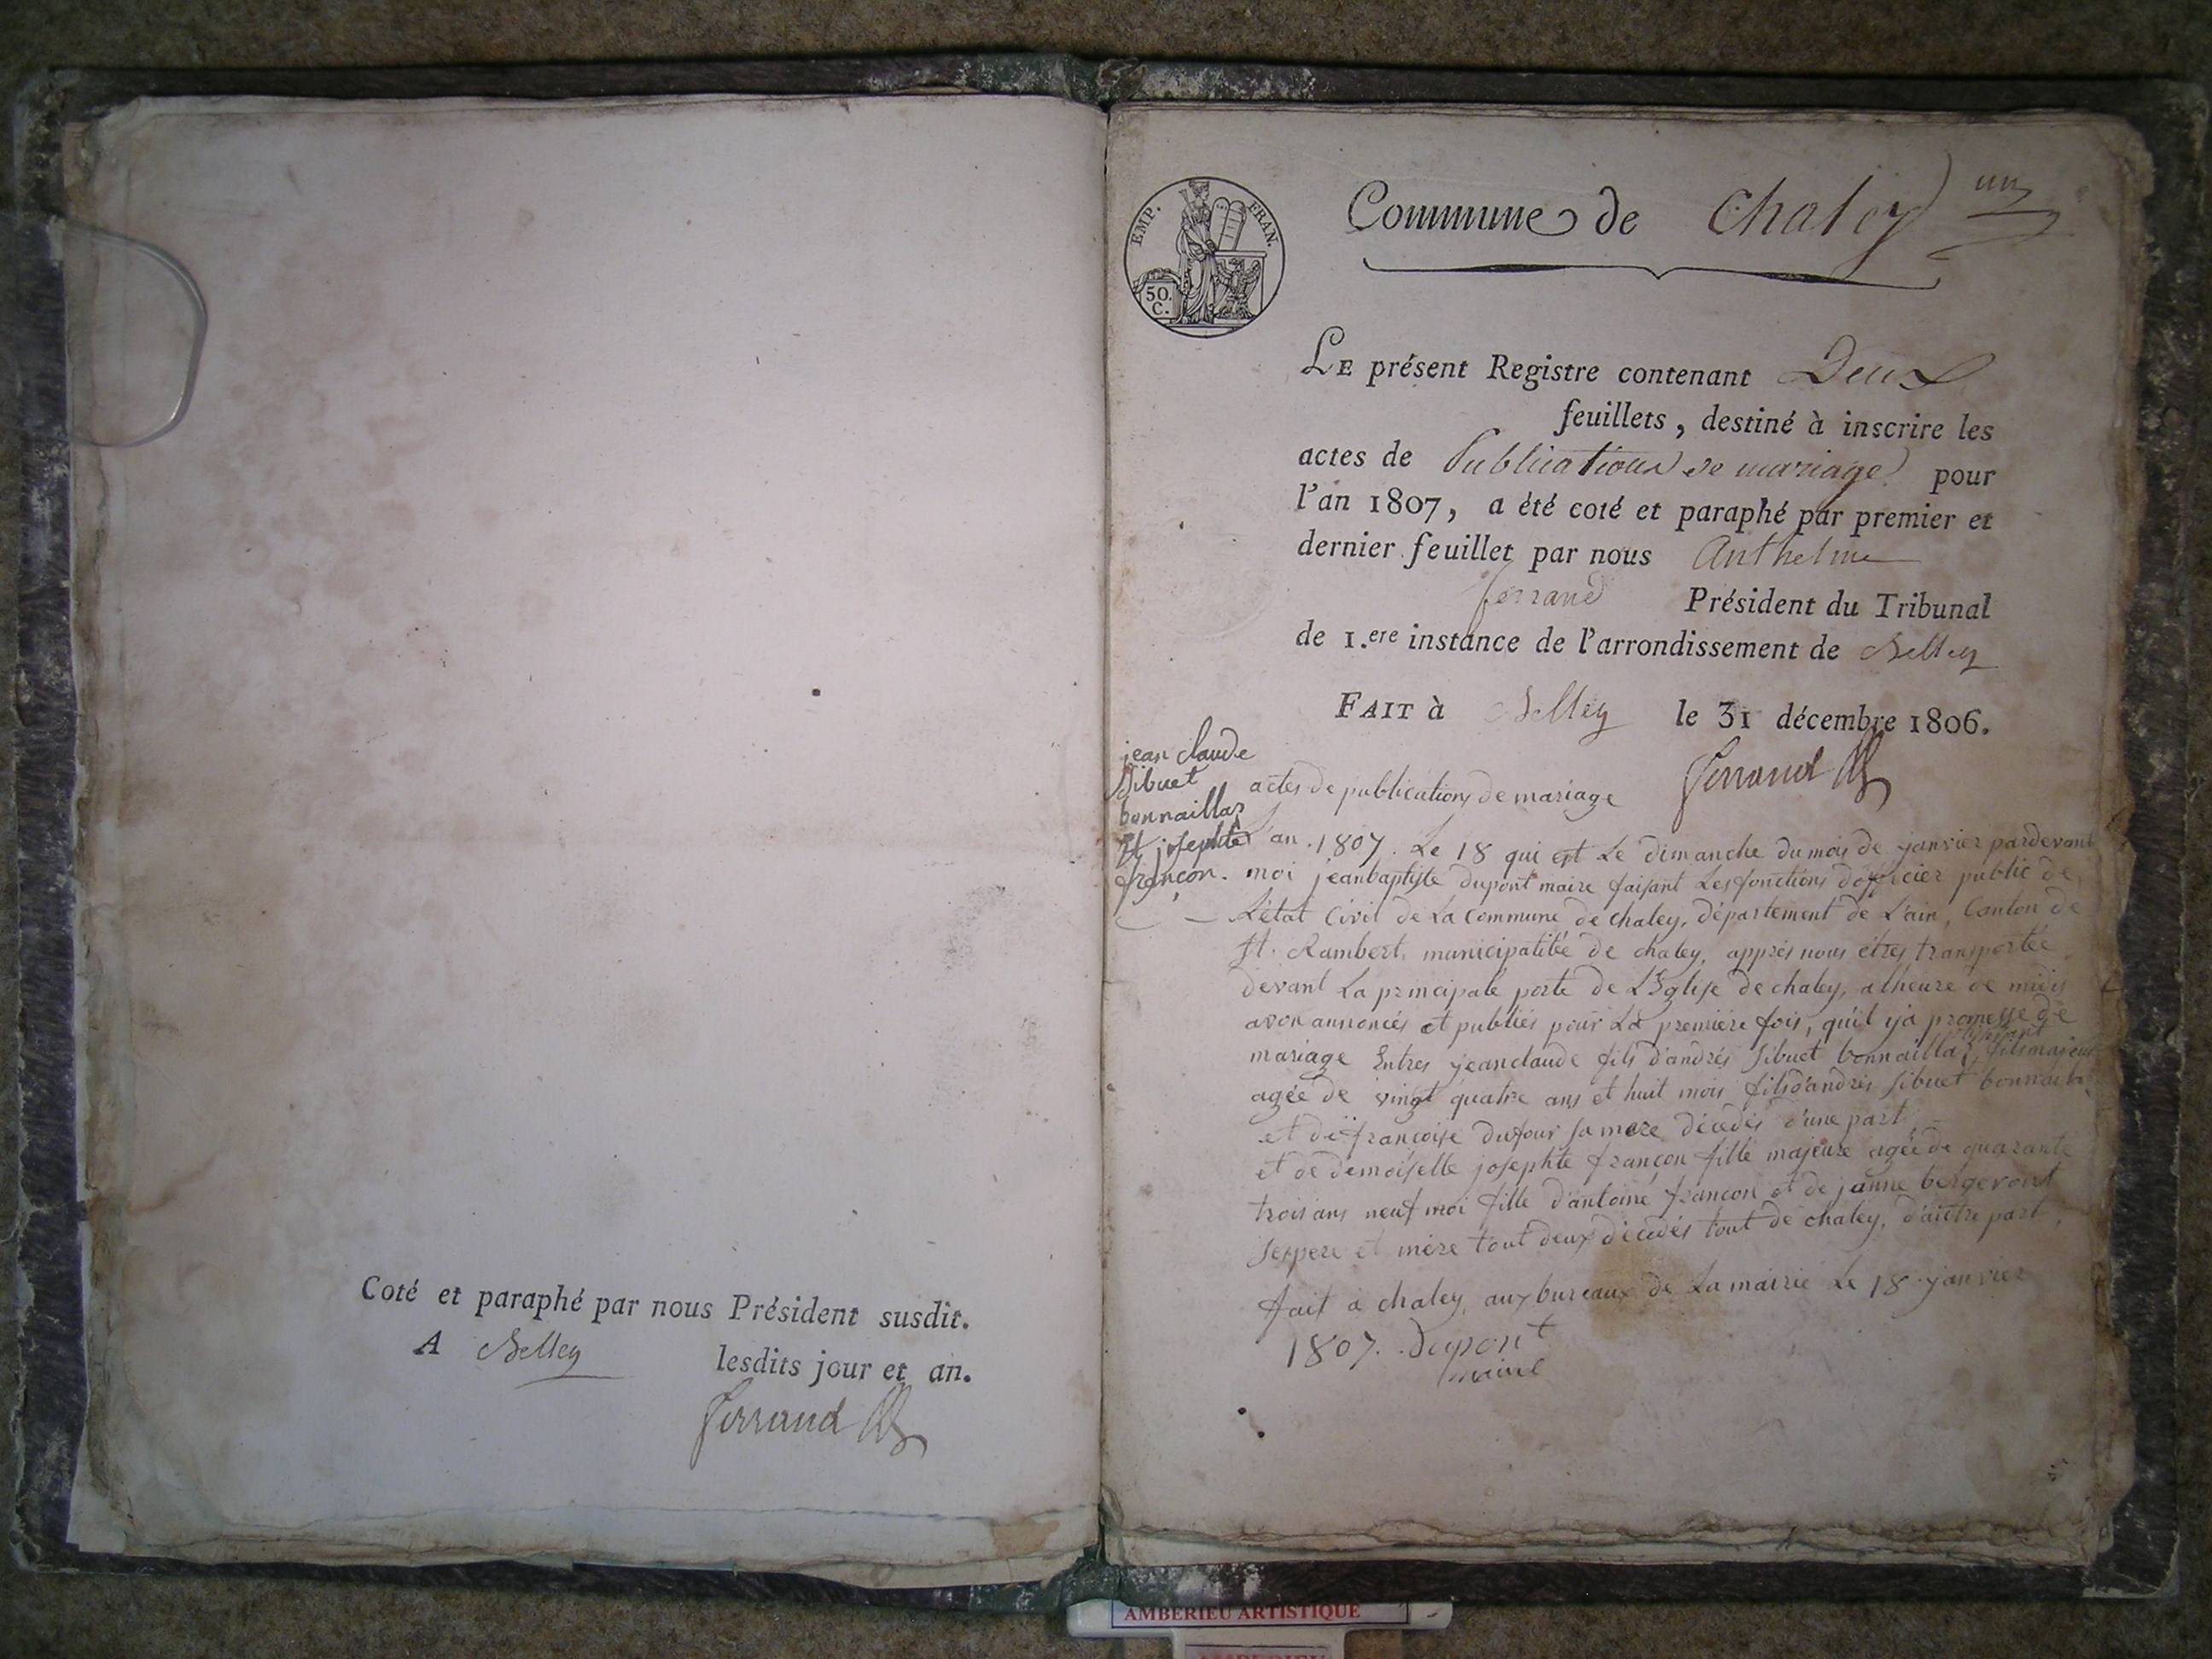 Coté et paraphé par nous Président susdit.
A Belley lesdits jour et an.
Ferrand
EMP. FRAN.
50.
C.
Commune de Chaley
un
LE présent Registre contenant Deux
feuillets, destiné à inscrire les
actes de Publications de mariage pour
l'an 1807, a été coté et paraphé par premier et
dernier feuillet par nous Anthelme
ferrand Président du Tribunal
de 1.ere instance de l'arrondissement de Belley
FAIT à Belley le 31 décembre 1806.
Ferrand
jean claude
Sibuet
bonnaillaz
Et josephte
françon.
actes de publications de mariage
L'an 1807. Le 18 qui est Le dimanche du mois de janvier pardevant
moi jeanbaptiste dupont maire faisant Les fonctions dofficier public de
L'état Civil de La Commune de chaley, département de L'ain, Canton de
St. Rambert, municipalitée de chaley, apprés nous êtres transportée
devant La principale porte de L'Eglise de chaley, a lheure de midis
avon annoncés et publiés pour La premiére fois, qu'il y a promesse de
mariage Entres jeanclaude fils d'andrés Sibuet bonnaillaz, fils majeur
agée de vingt quatre ans et huit mois fils d'andrés Sibuet bonnailla
et de françoise dufour sa mere décedés d'une part,
et de demoiselle josephte françon fille majeure agée de quarante
trois ans neuf moi fille d'antoine françon et de janne bergeront
ses pere et mére tout deux décedés tout de chaley, d'autre part,
fait a chaley, aux bureaux de La mairie Le 18 janvier
1807. Dupont
maire
AMBERIEU ARTISTIQUE
AMBERIEU